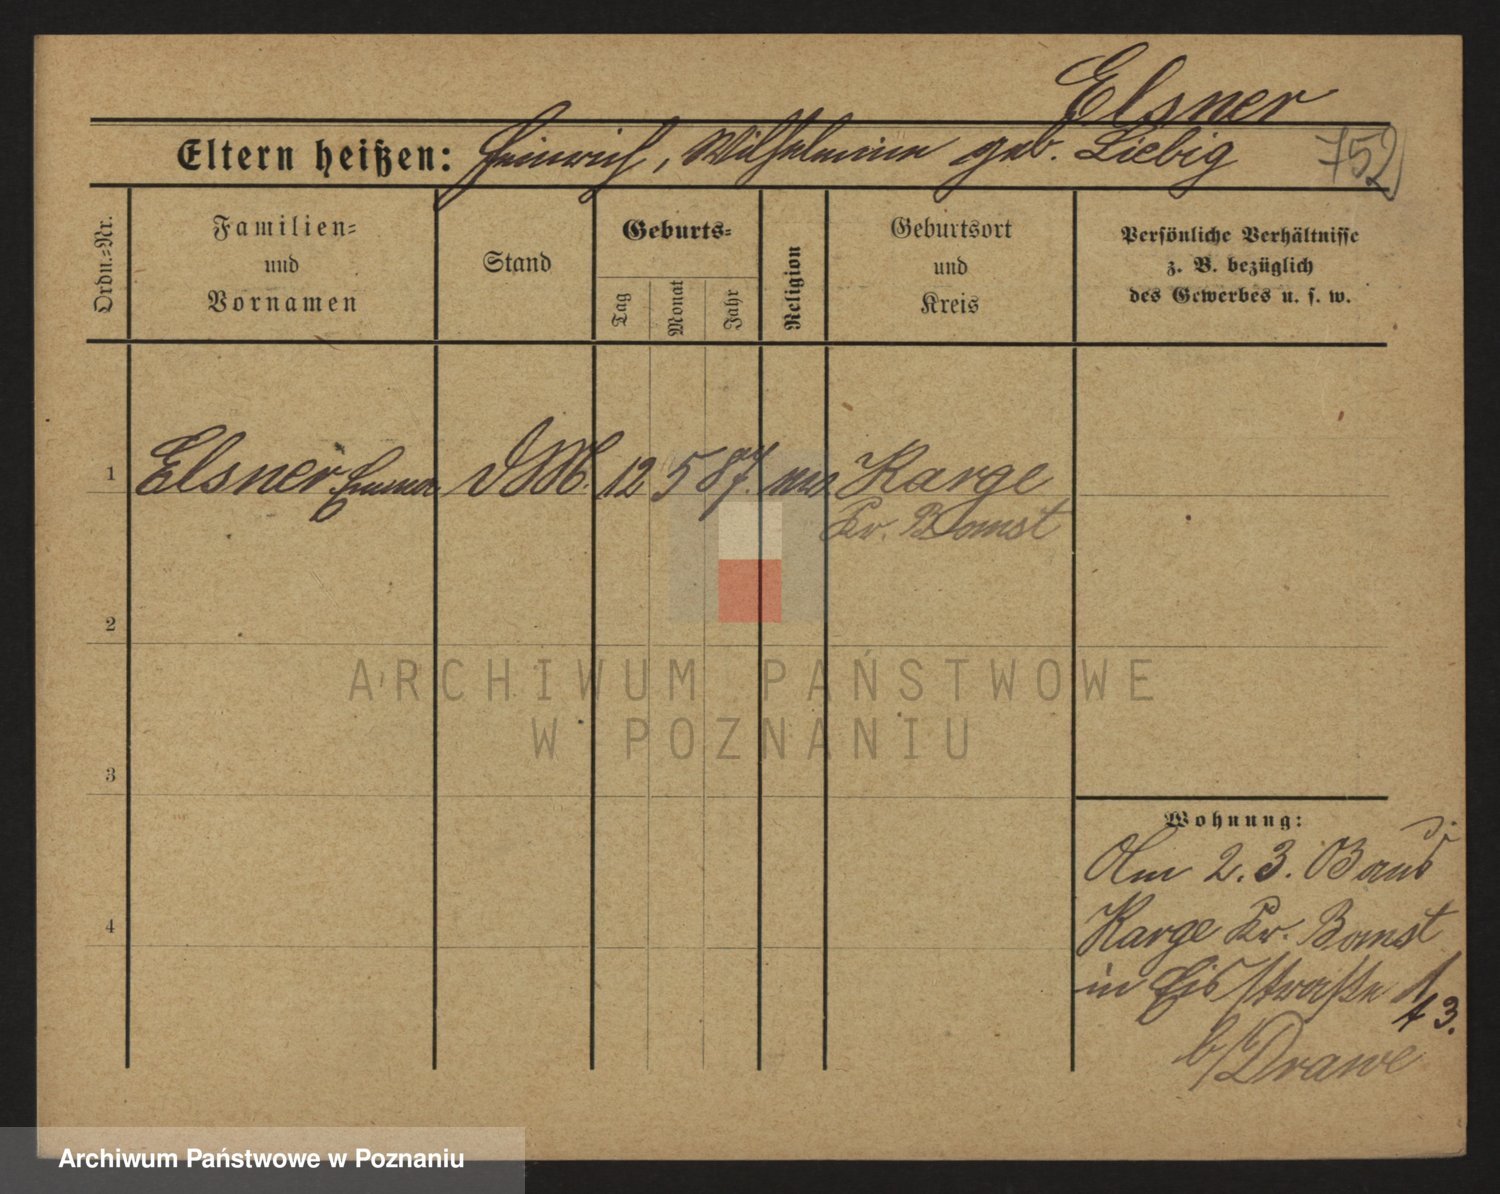 Elsner
Eltern heißen: Heinrich, Wilhelmine geb. Liebig
752
Ordn.-Nr.
Familien- und Vornamen
Stand
Geburts-
Tag
Monat
Jahr
Religion
Geburtsort und Kreis
Persönliche Verhältnisse
z. B. bezüglich
des Gewerbes u. s. w.
1 Elsner Emma DM. 12 5 87. Karge
Kr. Bomst
2
ARCHIWUM PAŃSTWOWE
W POZNANIU
3
Wohnung:
Am 2. 3. 03 aus
Karge Kr. Bomst
4
in Eisstraße
13.
b/ Drawe
Archiwum Państwowe w Poznaniu